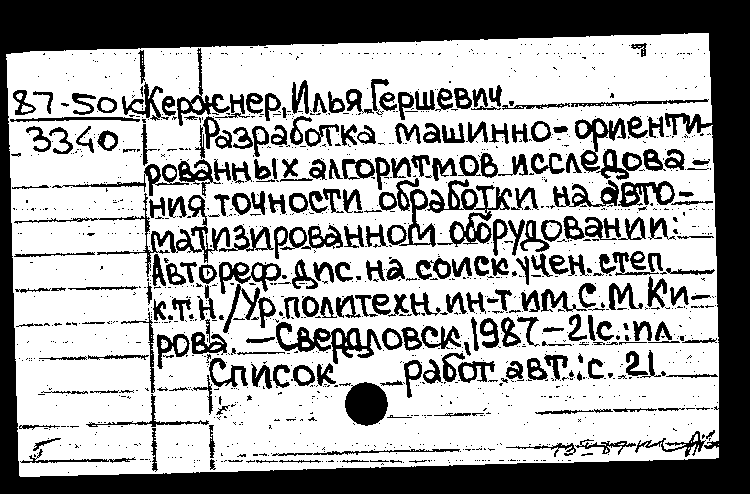 87-50к Кержнер, Илья Гершевич.
3340 Разработка машинно-ориенти-
рованных алгоритмов исследова-
ния точности обработки на авто-
матизированном оборудовании:
Автореф. дис. на соиск. учен. степ.
к.т.н. / Ур. политехн. ин-т им. С. М. Ки-
рова. — Свердловск, 1987 — 21 с.: ил.
Список работ авт.: с. 21.